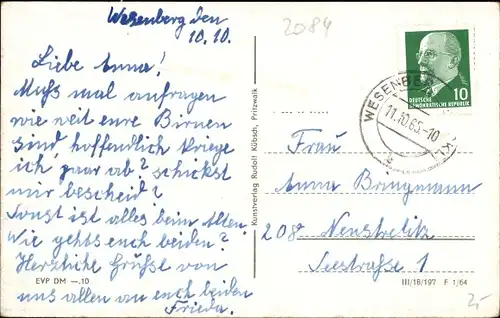 Wesenberg den
10.10.
Liebe Anna!
Muß mal anfragen
wie weit eure Birnen
sind, hoffendlich kriege
ich, paar ab? schickst
mir bescheid?
Sonst ist alles beim Alten.
Wie gehts euch beiden?
Herzliche Grüße von
uns allen an euch beiden
Frieda.
EVP DM —.10
Kunstverlag Rudolf Kübsch, Pritzwalk
2084
DEUTSCHE
DEMOKRATISCHE REPUBLIK
10
WESENBERG
11.10.65.-10
Frau
Anna Bringmann
208 Neustrelitz
Seestraße 1
III/18/197 F 1/64
2,-